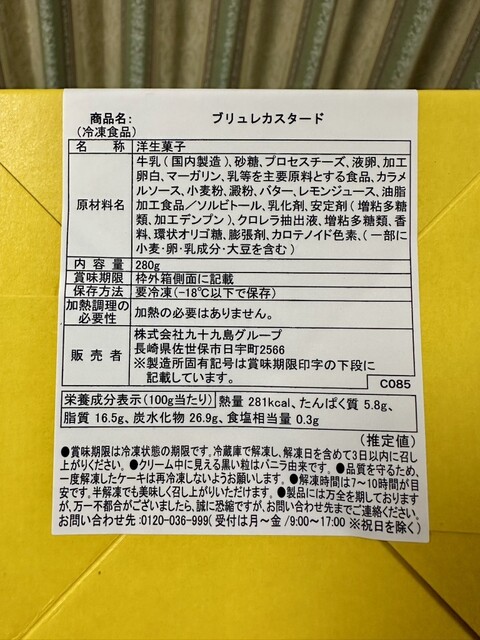 商品名: ブリュレカスタード
(冷凍食品)
名 称 洋生菓子
原材料名 牛乳(国内製造)、砂糖、プロセスチーズ、液卵、加工
卵白、マーガリン、乳等を主要原料とする食品、カラメ
ルソース、小麦粉、澱粉、バター、レモンジュース、油脂
加工食品/ソルビトール、乳化剤、安定剤(増粘多糖
類、加工デンプン)、クロレラ抽出液、増粘多糖類、香
料、環状オリゴ糖、膨張剤、カロテノイド色素、(一部に
小麦・卵・乳成分・大豆を含む)
内 容 量 280g
賞味期限 枠外箱側面に記載
保存方法 要冷凍(-18℃以下で保存)
加熱調理の
必要性 加熱の必要はありません。
販 売 者 株式会社九十九島グループ
長崎県佐世保市日宇町2566
※製造所固有記号は賞味期限印字の下段に
記載しています。
C085
栄養成分表示(100g当たり) 熱量 281kcal、たんぱく質 5.8g、
脂質 16.5g、炭水化物 26.9g、食塩相当量 0.3g
(推定値)
●賞味期限は冷凍状態の期限です。冷蔵庫で解凍し、解凍日を含めて3日以内に召し
上がりください。●クリーム中に見える黒い粒はバニラ由来です。●品質を守るため、
一度解凍したケーキは再冷凍しないようお願いします。●解凍時間は7~10時間が目
安です。半解凍でも美味しく召し上がりいただけます。●製品には万全を期しております
が、万一不都合がございましたら、誠に恐縮ですが、お問い合わせ先までご連絡ください。
お問い合わせ先:0120-036-999(受付は月~金/9:00~17:00 ※祝日を除く)